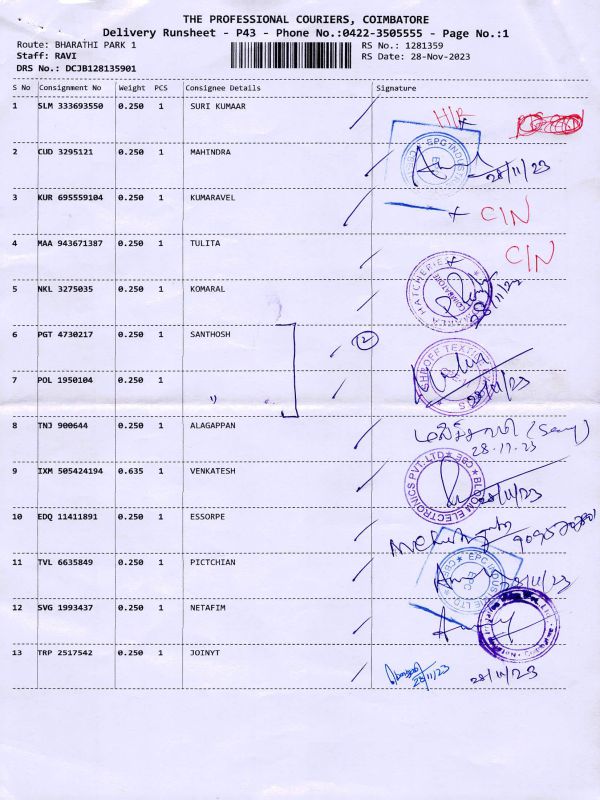 THE PROFESSIONAL COURIERS, COIMBATORE
Delivery Runsheet - P43 - Phone No.:0422-3505555 - Page No.:1
Route: BHARATHI PARK 1 RS No.: 1281359
Staff: RAVI RS Date: 28-Nov-2023
DRS No.: DCJB128135901
S No Consignment No Weight PCS Consignee Details Signature
1 SLM 333693550 0.250 1 SURI KUMAAR
2 CUD 3295121 0.250 1 MAHINDRA 28/11/23
3 KUR 695559104 0.250 1 KUMARAVEL C/N
4 MAA 943671387 0.250 1 TULITA C/N
5 NKL 3275035 0.250 1 KOMARAL
6 PGT 4730217 0.250 1 SANTHOSH 2
7 POL 1950104 0.250 1 " 28/11/23
8 TNJ 900644 0.250 1 ALAGAPPAN
28.11.23
9 IXM 505424194 0.635 1 VENKATESH BLOOM ELECTRONICS PVT. LTD CBE 28/11/23
10 EDQ 11411891 0.250 1 ESSORPE
11 TVL 6635849 0.250 1 PICTCHIAN 28/11/23
12 SVG 1993437 0.250 1 NETAFIM
13 TRP 2517542 0.250 1 JOINYT 28/11/23 28/11/23